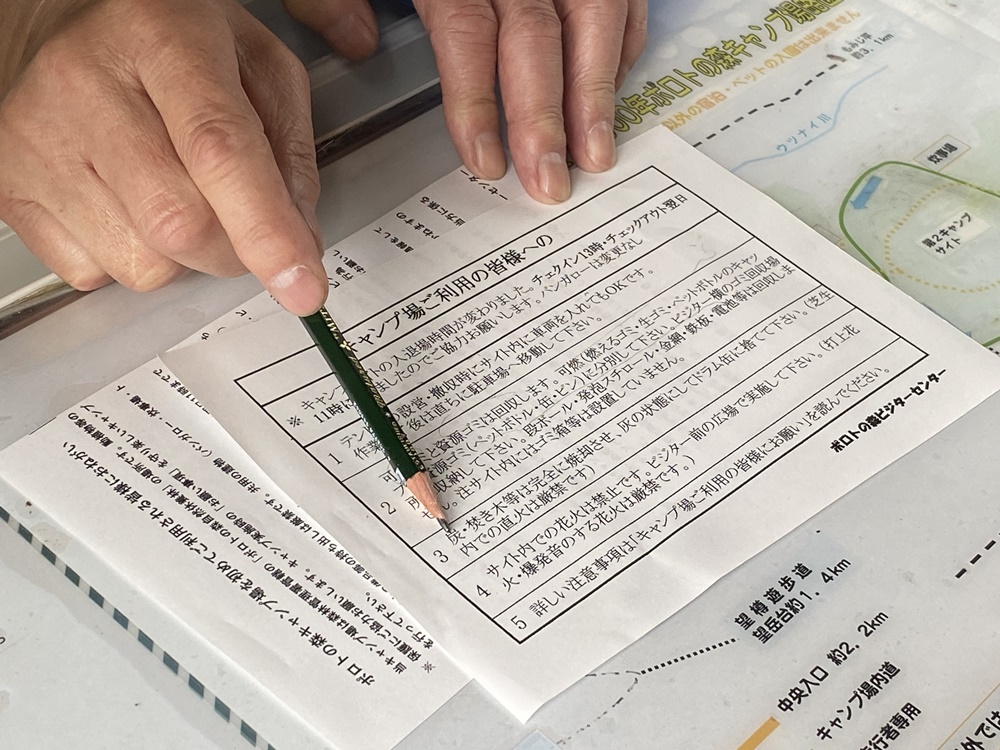 キャンプ場ご利用の皆様への
※ キャン の入退場時間が変わりました。チェックイン13時・チェックアウト翌日
11時 ましたのでご協力お願いします。バンガローは変更なし
1 テン 設営・撤収時にサイト内に車両を入れてもOKです。
作業 後は直ちに駐車場へ移動して下さい。
2 可 ミと資源ゴミは回収します。可燃(燃えるゴミ・生ゴミ・ペットボトルのキャッ
源ゴミ(ペットボトル・缶・ビン)に分別して下さい。ビジター横のゴミ回収場
所 収納して下さい。段ボール・発泡スチロール・金網・鉄板・電池等は回収しま
せん。注サイト内にはゴミ箱等は設置していません。
3 炭・焚き木等は完全に焼却させ、灰の状態にしてドラム缶に捨てて下さい。(芝生
内での直火は厳禁です)
4 サイト内での花火は禁止です。ビジター前の広場で実施して下さい。(打上花
火・爆発音のする花火は厳禁です。)
5 詳しい注意事項は「キャンプ場ご利用の皆様にお願い」を読んでください。
ポロトの森ビジターセンター
ポロトの森キャンプ場を初めてご利用される皆様におねがい
を行って下さい。
00年ポロトの森キャンプ場
以外の宿泊・ペットの入園は出来ません
もみじ平
約3.1km
ウツナイ川
炊事場
第2キャンプ
サイト
望樽遊歩道
望岳台約1.4km
中央入口 約2.2km
キャンプ場内道
行者専用
外では